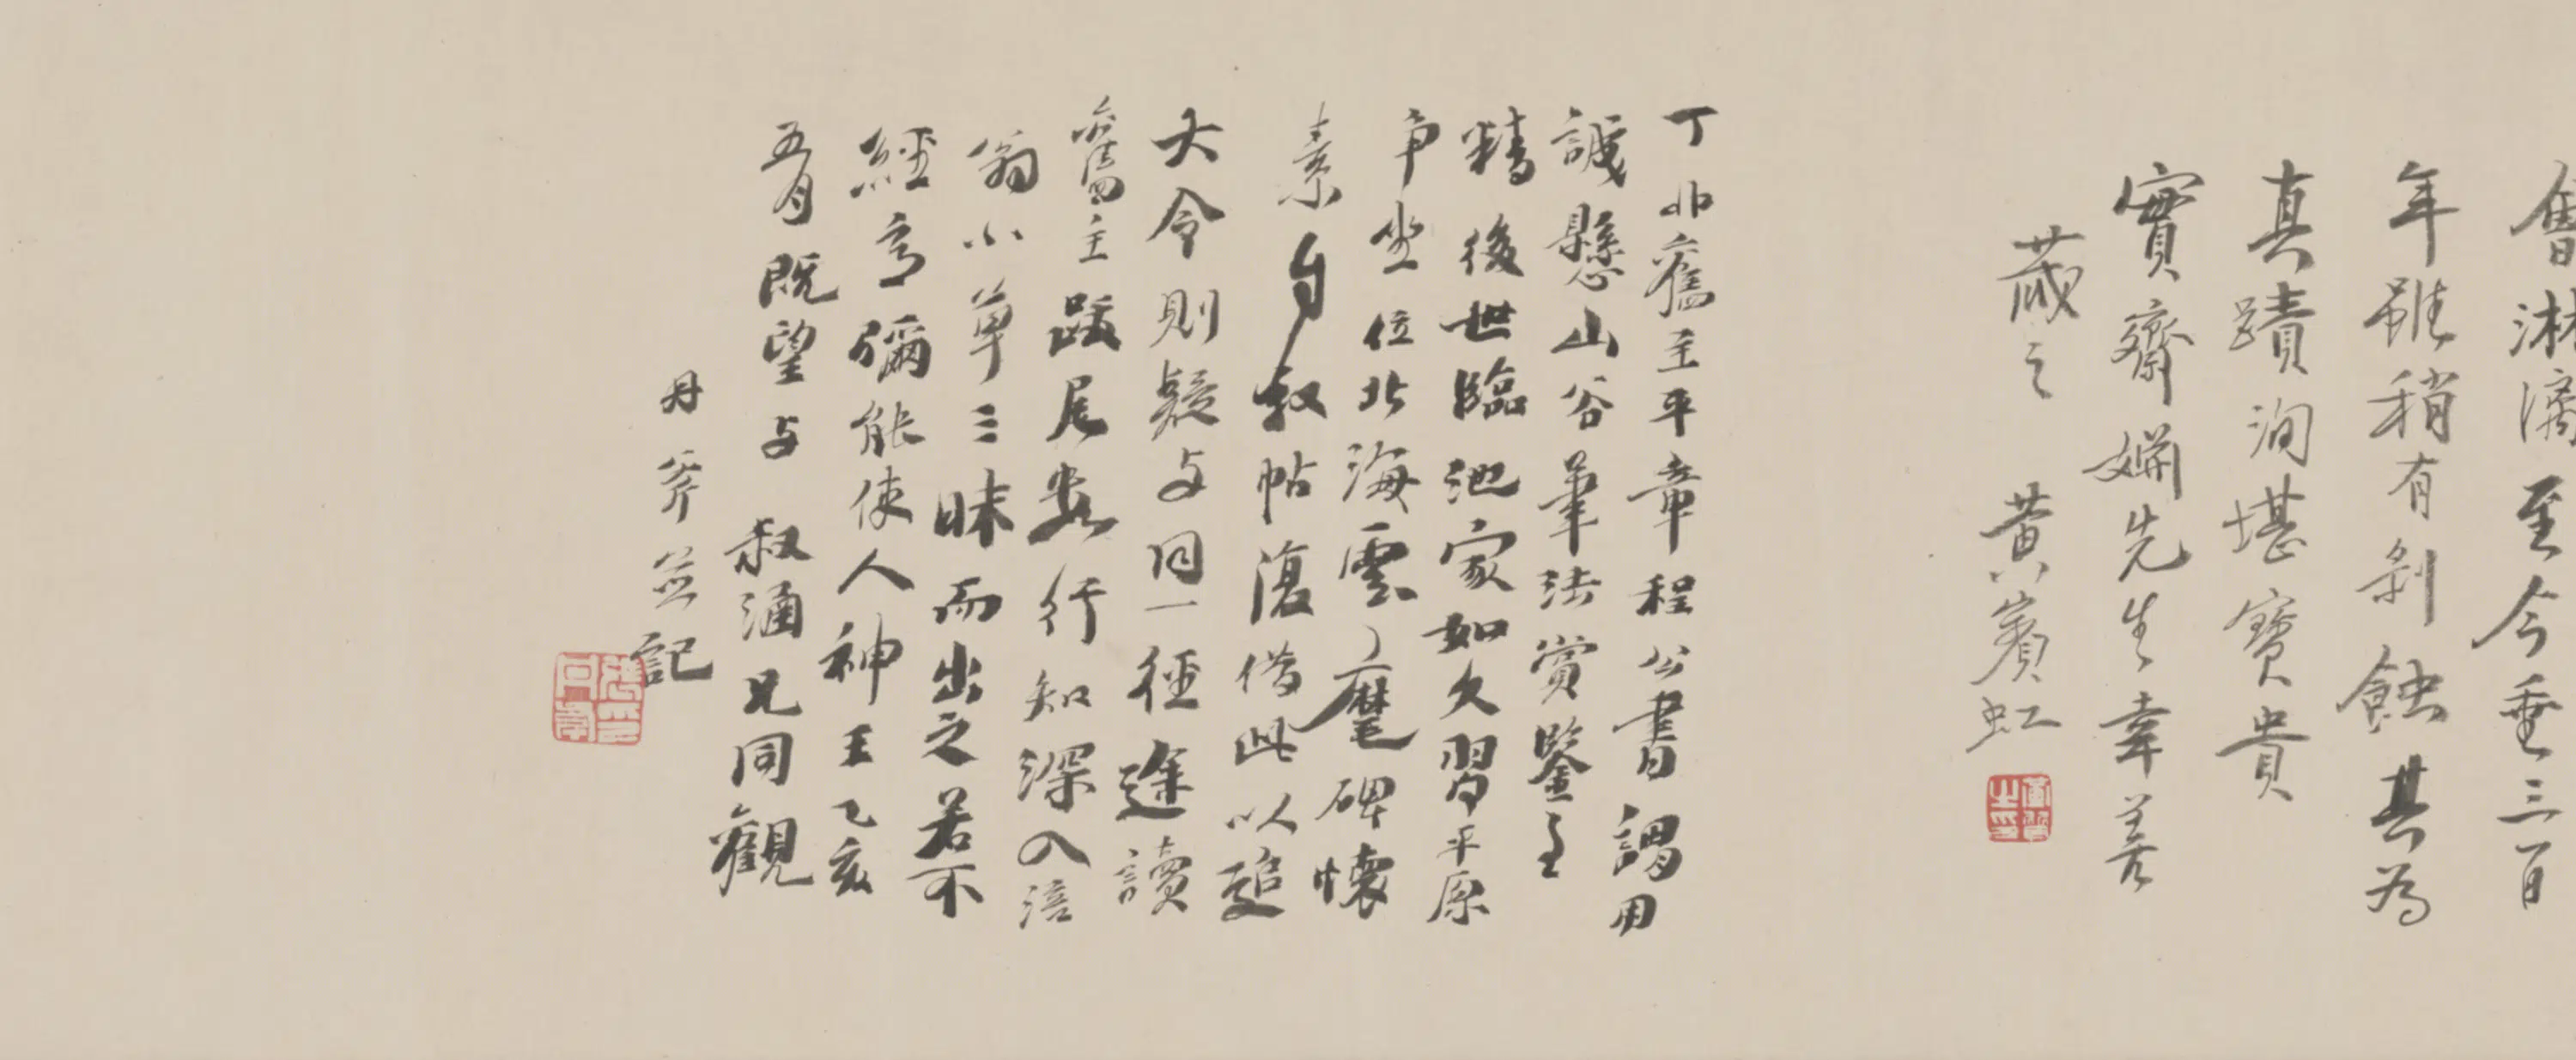 舊淋漓至今垂三百
年雖稍有剝蝕其為
真蹟洵堪寶貴
實齋嫻先生幸善
藏之 黄賓虹
丁卯舊主平章程公書謂用
誠懸山谷筆法賞鑒之
精後世臨池家如久習平原
争坐位北海雲麾碑懷
素自叙帖復借此以追
大令則疑与同一徑途讀
舊主跋尾數行知深入涪
翁小草三昧而出之若不
經意彌能使人神王乙亥
五月既望与叔涵兄同觀
丹斧並記